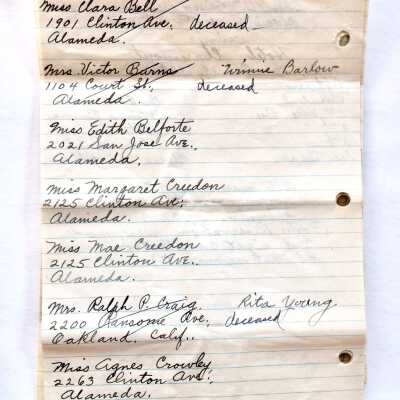 Miss Clara Bell
1901 Clinton Ave. deceased
Alameda.
Mrs. Victor Barns Winnie Barlow
1104 Court St., deceased
Alameda.
Miss Edith Belforte
2021 San Jose Ave.,
Alameda.
Miss Margaret Creedon
2125 Clinton Ave.,
Alameda.
Miss Mae Creedon
2125 Clinton Ave.,
Alameda.
Mrs. Ralph P. Craig. Rita Young
2200 Ransome Ave. deceased
Oakland. Calif.,
Miss Agnes Crowley
2263 Clinton Ave.,
Alameda.